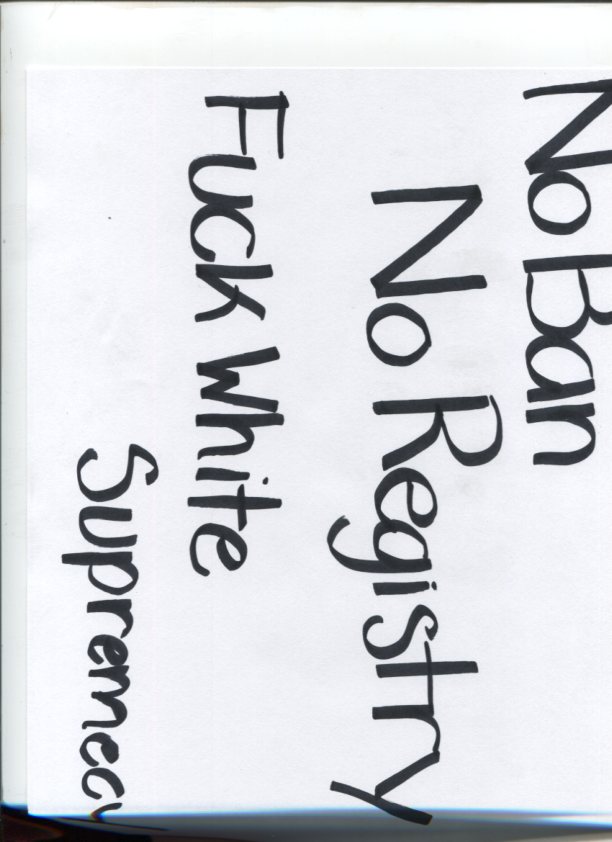 No Ban
No Registry
Fuck White
Supremecy